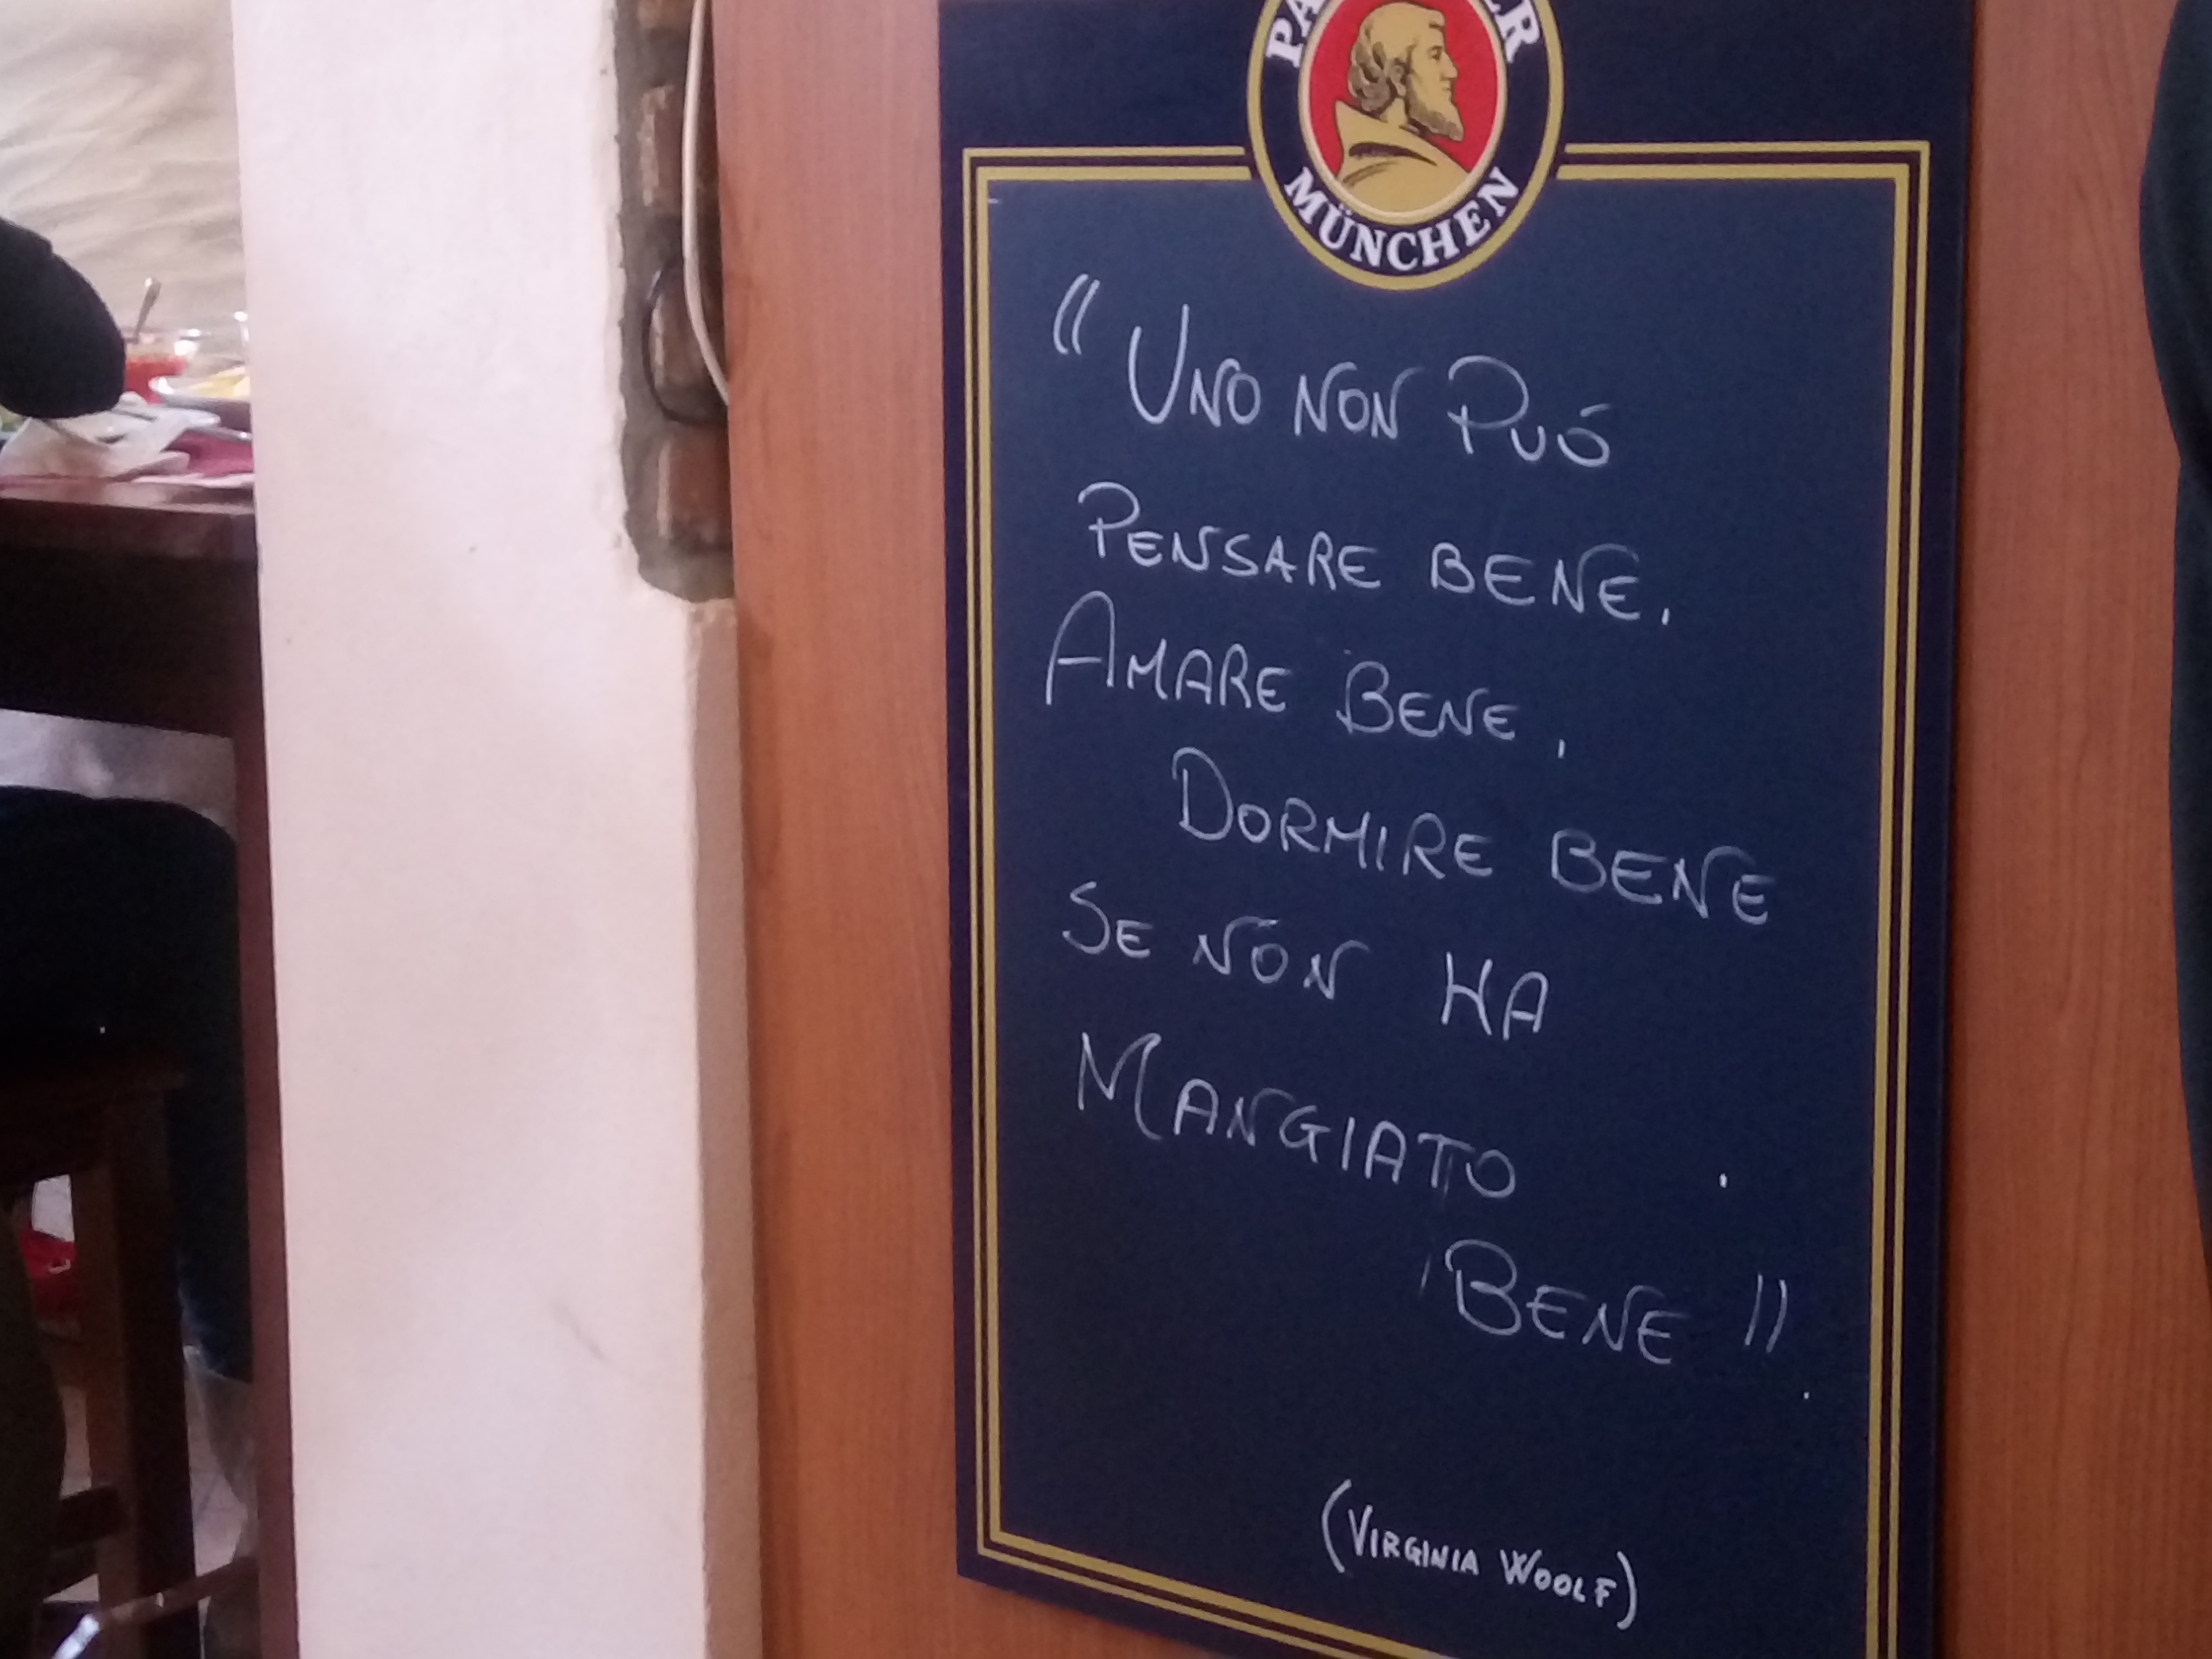 MÜNCHEN
"UNO NON PUÓ
PENSARE BENE,
AMARE BENE,
DORMIRE BENE
SE NON HA
MANGIATO
BENE"
(VIRGINIA WOOLF)